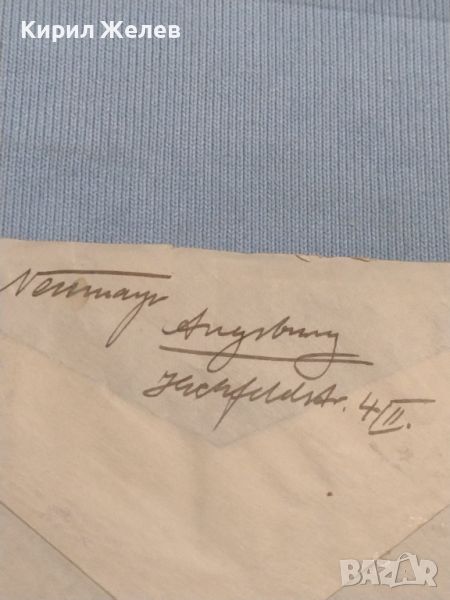 Кирил Желев
Neumayr
Augsburg
Hochfeldstr. 4/II.
BAZAR